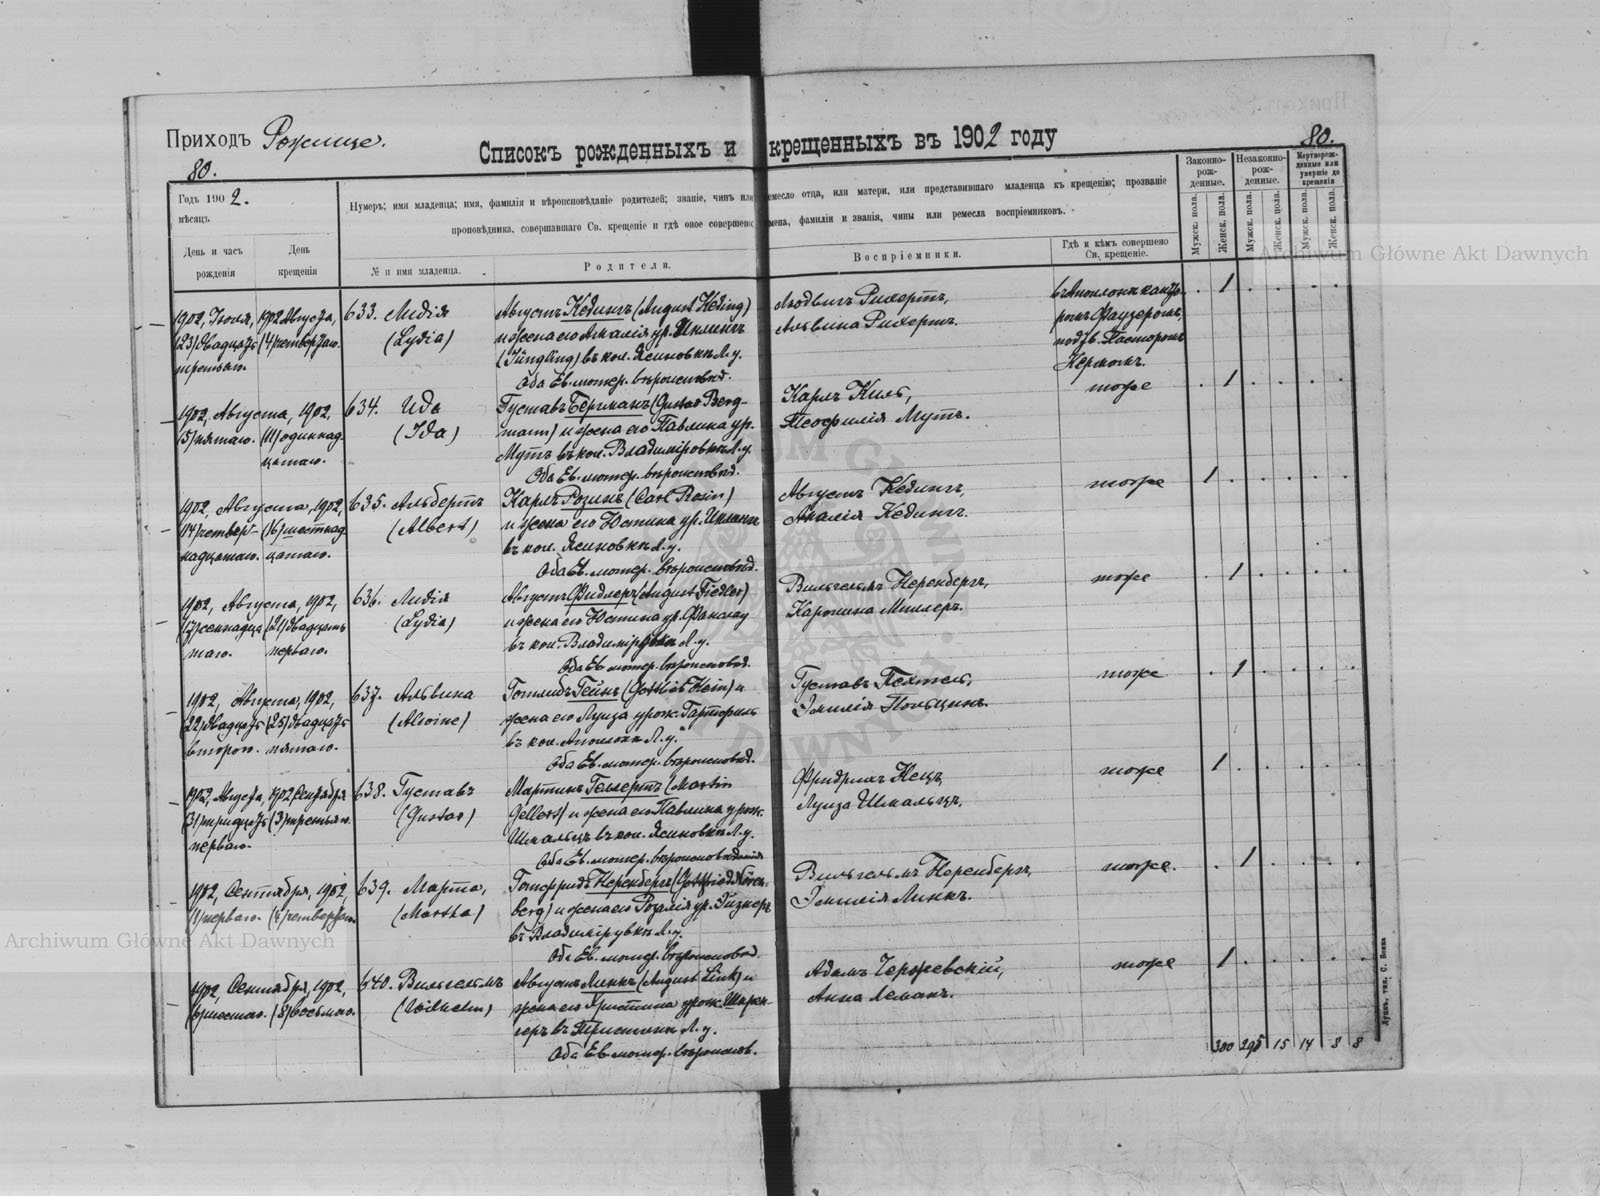 Приходъ Рожище.
Списокъ рожденныхъ и крещенныхъ въ 1902 году
80.
80.
Годъ 1902.
мѣсяцъ
Нумеръ; имя младенца; имя, фамилія и вѣроисповѣданіе родителей; званіе, чинъ или ремесло отца, или матери, или представившаго младенца къ крещенію; прозваніе
проповѣдника, совершавшаго Св. крещеніе и гдѣ оное совершено; имена, фамиліи и званія, чины или ремесла воспріемниковъ.
Законно-
рож-
денные.
Незаконно-
рож-
денные.
Мертворож-
денные или
умершіе до
крещенія
День и часъ
рожденія
День
крещенія
№ и имя младенца.
Родители.
Воспріемники.
Гдѣ и кѣмъ совершено
Св. крещеніе.
Мужск. пола.
Женск. пола.
Мужск. пола.
Женск. пола.
Мужск. пола.
Женск. пола.
1902, Іюля,
(23) двадцать
третьяго.
1902 Августа,
(4) четвертаго.
633. Лидія
(Lydia)
Августъ Кедингъ (August Keding)
и жена его Амалія ур. Инлингъ
(Jüngling) въ кол. Ясиновкѣ Л. у.
Оба Ев. лютер. вѣроисповѣд.
Людвигъ Рихертъ,
Альвина Рихертъ.
въ Аполонкѣ канто-
ромъ Фаузеромъ,
подтв. Пасторомъ
Кермомъ.
1
1902, Августа,
(5) пятаго.
1902,
(11) одиннад-
цатаго.
634. Ида
(Ida)
Густавъ Бергманъ (Gustav Berg-
mann) и жена его Павлина ур.
Мутъ въ кол. Владиміровкѣ Л. у.
Оба Ев. лютер. вѣроисповѣд.
Карлъ Киль,
Теофилія Мутъ.
тоже
1
1902, Августа,
(14) четверт-
надцатаго.
1902,
(16) шестнад-
цатаго.
635. Альбертъ
(Albert)
Карлъ Розинъ (Carl Rosin)
и жена его Юстина ур. Инлингъ
въ кол. Ясиновкѣ Л. у.
Оба Ев. лютер. вѣроисповѣд.
Августъ Кедингъ,
Амалія Кедингъ.
тоже
1
1902, Августа,
(17) семнадца-
таго.
1902,
(21) двадцать
перваго.
636. Лидія
(Lydia)
Августъ Фидлеръ (August Fiedler)
и жена его Юстина ур. Фанслау
въ кол. Владиміровкѣ Л. у.
Оба Ев. лютер. вѣроисповѣд.
Вильгельмъ Неренбергъ,
Каролина Миллеръ.
тоже
1
1902, Августа,
(22) двадцать
второго.
1902,
(25) двадцать
пятаго.
637. Альвина
(Alwine)
Готлибъ Гейнъ (Gottlieb Hein) и
жена его Луиза урож. Гартфиль
въ кол. Аполонкѣ Л. у.
Оба Ев. лютер. вѣроисповѣд.
Густавъ Пехтель,
Эмилія Польцинъ.
тоже
1
1902, Августа,
(31) тридцать
перваго.
1902, Сентября
(3) третьяго.
638. Густавъ
(Gustav)
Мартинъ Геллертъ (Martin
Gellert) и жена его Павлина урож.
Шмальцъ въ кол. Ясиновкѣ Л. у.
Оба Ев. лютер. вѣроисповѣданія
Фридрихъ Кецъ,
Луиза Шмальцъ.
тоже
1
1902, Сентября,
(1) перваго.
1902,
(4) четвертаго.
639. Марта,
(Martha)
Готфридъ Неренбергъ (Gottfried Nören-
berg) и жена его Розалія ур. Эйзнеръ
въ Владиміровкѣ Л. у.
Оба Ев. лютер. вѣроисповѣд.
Вильгельмъ Неренбергъ,
Эмилія Линкъ.
тоже.
1
1902, Сентября,
(6) шестаго.
1902,
(8) восьмаго.
640. Вильгельмъ
(Wilhelm)
Августъ Линкъ (August Link) и
жена его Христина урож.
Л. у.
Оба Ев. лютер. вѣроисповѣ.
Адамъ
Анна Леманъ.
тоже
1
300 295 15 14 8 8
Луцкъ, тип. С. Бонка
Archiwum Główne Akt Dawnych
Archiwum Główne Akt Dawnych